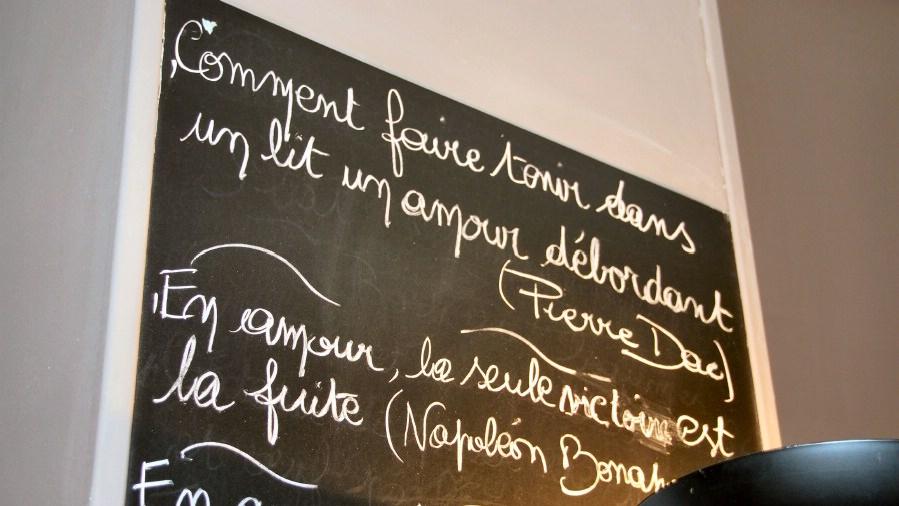 Comment faire tenir dans
un lit un amour débordant
(Pierre Dac)
En amour, la seule victoire est
la fuite (Napoléon Bonap
En a